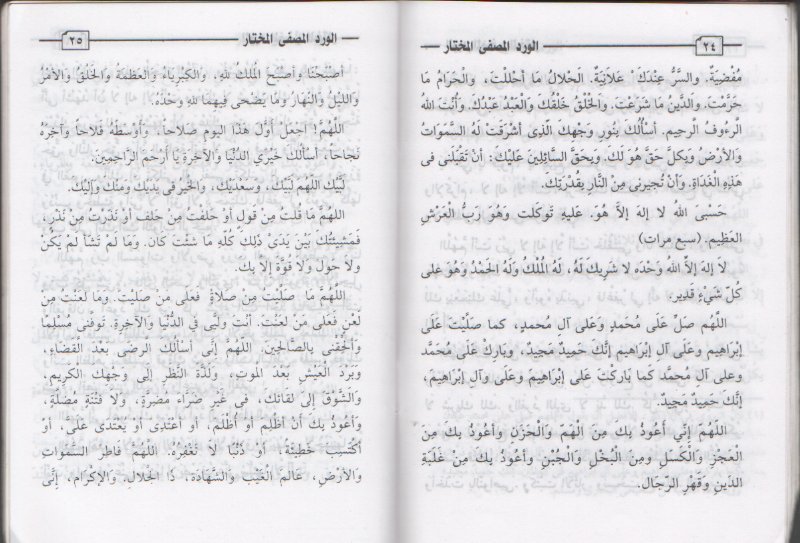 الورد المصفى المختار
٢٤
مُفْضِيَةٌ. وَالسِّرُّ عِنْدَكَ عَلاَنِيَةٌ. الْحَلاَلُ مَا أَحْلَلْتَ، وَالْحَرَامُ مَا
حَرَّمْتَ. وَالدِّينُ مَا شَرَعْتَ. وَالْخَلْقُ خَلْقُكَ وَالْعَبْدُ عَبْدُكَ. وَأَنْتَ اللهُ
الرَّءُوفُ الرحيم. أَسْأَلُكَ بِنُورِ وَجْهِكَ الَّذِى أَشْرَقَتْ لَهُ السَّمَوَاتُ
وَالأَرْضُ وَبِكُلِّ حَقٍّ هُوَ لَكَ. وَبِحَقِّ السَّائِلِينَ عَلَيْكَ: أَنْ تَقْبَلَنِى فِى
هَذِهِ الْغَدَاةِ. وَأَنْ تُجِيرَنِى مِنَ النَّارِ بِقُدْرَتِكَ.
حَسْبِىَ اللهُ لا إِلهَ إلاَّ هُوَ. عَلَيهِ تَوَكَّلت وَهُوَ رَبُّ الْعَرْشِ
العظِيمِ. (سبع مرات)
لاَ إِلهَ إِلاَّ اللهُ وَحْدَه لاَ شَرِيكَ لَهُ، لَهُ الْمُلْكُ وَلَهُ الْحَمْدُ وَهُوَ عَلى
كُلِّ شَيْءٍ قَدِير.
اللَّهُم صَلِّ عَلَى مُحَمَّدٍ وَعَلى آلِ محمدٍ، كما صَلَّيْتَ عَلَى
إِبْرَاهِيم وَعَلَى آلِ إِبْرَاهِيم إِنَّكَ حَمِيدٌ مَجِيدٌ. وَبَارِكْ عَلَى مُحَمَّد
وعلى آلِ محمَّد كَمَا بَارَكْتَ عَلَى إِبْرَاهِيمَ وَعَلَى وَآلِ إِبْرَاهِيمَ،
إِنَّكَ حَمِيدٌ مَجِيدٌ.
اللَّهُم إِنِّى أَعُوذُ بِكَ مِنَ الْهَمِّ وَالْحَزَنِ وَأعُوذُ بِكَ مِنَ
الْعَجْزِ وَالْكَسَلِ وَمِنَ الْبُخْلِ وَالْجُبْنِ وَأَعُوذُ بِكَ مِنْ غَلَبَةِ
الدَّيْنِ وَقَهْرِ الرِّجَالِ.
الورد المصفى المختار
٢٥
أَصبَحْنَا وَأَصْبَحَ الْمُلْكُ للهِ، وَالْكِبْرِيَاءُ وَالْعَظَمَةُ وَالْخَلْقُ وَالأَمْرُ
وَاللَّيْلُ وَالنَّهَارُ وَمَا يَضْحَى فِيهِمَا للهِ وَحْدَهُ.
اللَّهُمَّ! اجعَلْ أَوَّلَ هَذَا اليوم صَلاَحاً، وَأَوْسَطَهُ فَلاَحاً وَآخِرَهُ
نَجَاحاً، أَسأَلُكَ خَيْرَىِ الدُّنْيَا وَالآخِرَةِ يَا أَرْحَمَ الرَّاحِمِينَ.
لَبَّيْكَ اللَّهم لَبَّيْكَ، وسعدَيْكَ، وَالْخَيرُ فِى يَدَيْكَ وَمِنْكَ وَإِلَيْكَ.
اللَّهُم مَا قلْتُ مِنْ قولٍ أَوْ حَلَفْتُ مِنْ حَلِفٍ أَوْ نَذَرْتُ مِنْ نَذْرٍ،
فَمَشِيئَتُكَ بَيْنَ يَدَىْ ذَلِكَ كُلِّهِ مَا شئتَ كَان. وَمَا لَمْ تَشَأْ لَمْ يَكُنْ
وَلاَ حَوْلَ وَلاَ قُوَّةَ إِلاَّ بِكَ.
اللَّهُم مَا صَلَّيْتُ مِن صَلاَةٍ فَعلى مَن صَلَّيْتَ. ومَا لَعَنْتُ مِن
لَعْنٍ فَعَلَى مَنْ لَعَنْتَ. أَنْتَ وَلِيِّى فِى الدُّنْيَا وَالآخِرَةِ. تَوفَّنِى مُسْلِمًا
وَأَلْحِقْنِى بِالصَّالِحِينَ اللَّهُمَّ إِنِّى أَسْأَلُكَ الرِّضَى بَعْدَ الْقَضَاءِ،
وَبَرْدَ الْعَيْشِ بَعْدَ الْمَوتِ، وَلَذَّةَ النَّظَرِ إِلَى وَجْهِكَ الكَرِيمِ،
وَالشَّوْقَ إِلى لِقَائِكَ، فِى غَيْرِ ضَرَّاء مُضِرَّةٍ، وَلاَ فِتْنَةٍ مُضِلَّةٍ،
وَأَعُوذُ بِكَ أَنْ أَظْلِمَ أَو أُظْلَمَ، أَوْ أَعْتَدِىَ أَوْ يُعْتَدَى عَلَىَّ، أَوْ
أَكْتَسِبَ خَطِيئَةً، أَو ذَنْبًا لاَ تَغْفِرُهُ. اللَّهُم فَاطِرَ السَّمَوَاتِ
وَالأَرْضِ، عَالِمَ الْغَيْبِ وَالشَّهَادَةِ، ذَا الْجَلالِ وَالإِكْرَامِ، إِنِّى